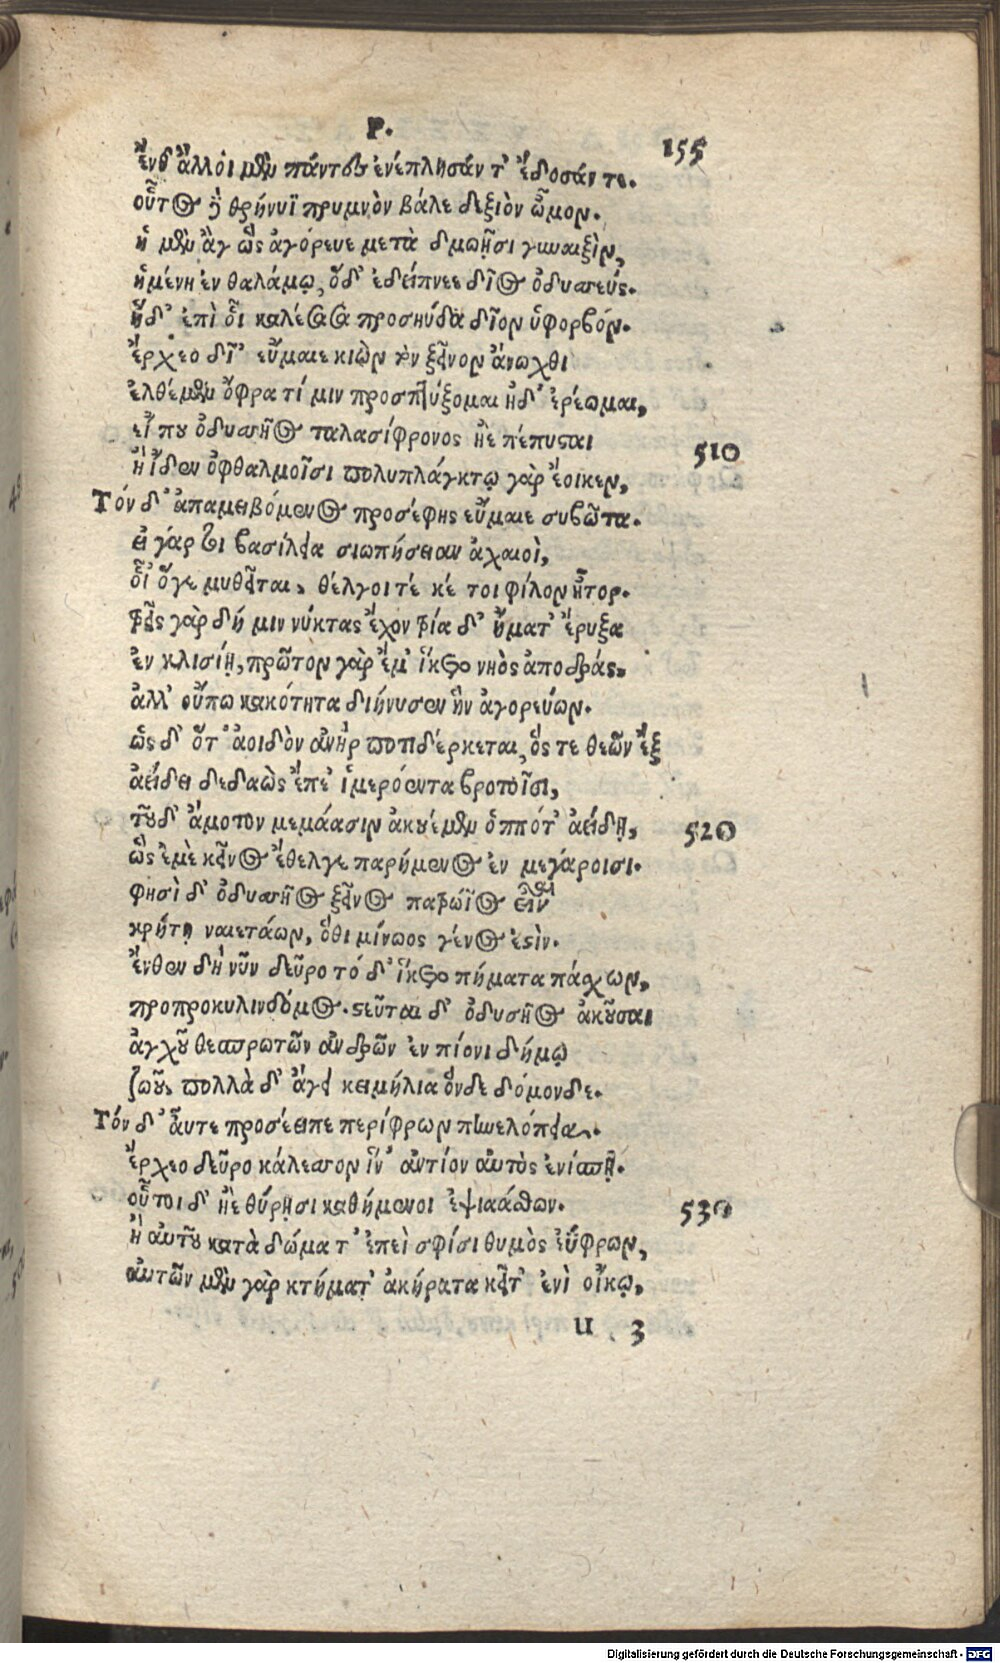 Ρ.
155
ἔνθ' ἄλλοι μὲν πάντες ἐνέπλησάν τ' ἔδοσάν τε.
οὗτος δὲ θρήνυϊ πρυμνὸν βάλε δεξιὸν ὦμον.
ἡ μὲν ἂρ ὣς ἀγόρευε μετὰ δμωῇσι γυναιξὶν,
ἡμένη ἐν θαλάμῳ, ὅδ' ἐδείπνεε δῖος ὀδυσσεύς.
ἡ δ' ἐπὶ οἷ καλέσασα προσηύδα δῖον ὑφορβόν.
ἔρχεο δῖ' εὔμαιε κιὼν τὸν ξεῖνον ἄνωχθι
ἐλθέμεν ὄφρα τί μιν προσπτύξομαι ἠδ' ἐρέωμαι,
εἴ που ὀδυσσῆος ταλασίφρονος ἠὲ πέπυσται
510
ἢ ἴδεν ὀφθαλμοῖσι πολυπλάγκτῳ γὰρ ἔοικεν,
Τόν δ' ἀπαμειβόμενος προσέφης εὔμαιε συβῶτα.
εἰ γάρ τοι βασίλεια σιωπήσειαν ἀχαιοὶ,
οἷ' ὅγε μυθεῖται, θέλγοιτέ κέ τοι φίλον ἦτορ.
τρεῖς γὰρ δή μιν νύκτας ἔχον τρία δ' ἤματ' ἔρυξα
ἐν κλισίῃ, πρῶτον γὰρ ἔμ' ἵκετο νηὸς ἀποδράς.
ἀλλ' οὔπω κακότητα διήνυσεν ἣν ἀγορεύων.
ὡς δ' ὅτ' ἀοιδὸν ἀνὴρ ποτιδέρκεται, ὅς τε θεῶν ἒξ
ἀείδει δεδαὼς ἔπε' ἱμερόεντα βροτοῖσι,
τοῦ δ' ἄμοτον μεμάασιν ἀκουέμεν ὁππότ' ἀείδῃ,
520
ὣς ἐμὲ κεῖνος ἔθελγε παρήμενος ἐν μεγάροισι.
φησὶ δ' ὀδυσσῆος ξεῖνος πατρώϊος εἶναι
κρήτῃ ναιετάων, ὅθι μίνωος γένος ἐστὶν.
ἔνθεν δὴ νῦν δεῦρο τό δ' ἵκετο πήματα πάσχων,
προπροκυλινδόμενος. στεῦται δ' ὀδυσῆος ἀκοῦσαι
ἀγχοῦ θεσπρωτῶν ἀνδρῶν ἐν πίονι δήμῳ
ζωοῦ, πολλὰ δ' ἄγει κειμήλια ὅνδε δόμονδε.
Τόν δ' αὖτε προσέειπε περίφρων πηνελόπεια.
ἔρχεο δεῦρο κάλεσσον ἵν' ἀντίον αὐτὸς ἐνίσπῃ.
οὗτοι δ' ἠὲ θύρῃσι καθήμενοι ἑψιαάσθων.
530
ἢ αὐτοῦ κατὰ δώματ' ἐπεὶ σφίσι θυμὸς ἐΰφρων,
αὐτῶν μὲν γὰρ κτήματ' ἀκήρατα κεῖτ' ἐνὶ οἴκῳ,
u 3
Digitalisierung gefördert durch die Deutsche Forschungsgemeinschaft - DFG